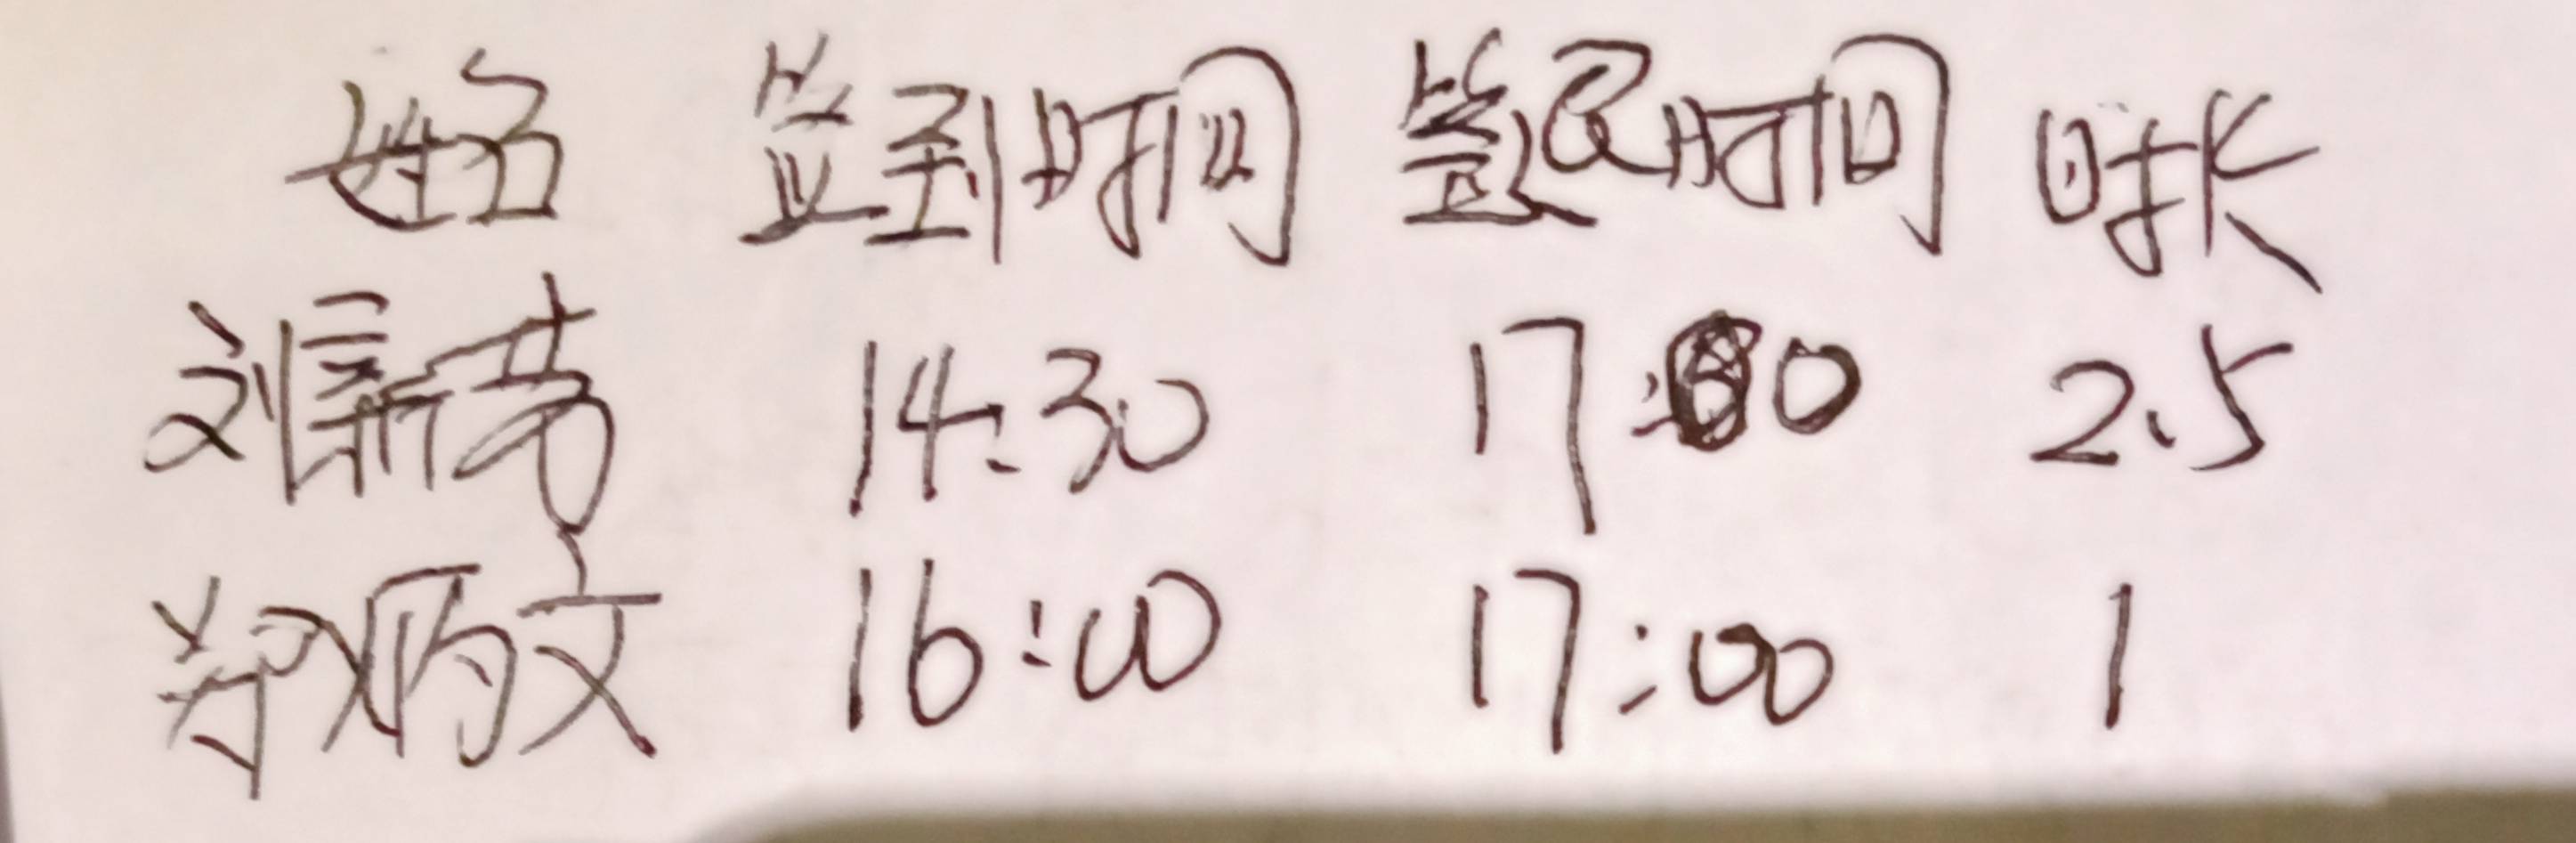 姓名 签到时间 签退时间 时长
刘新芳 14:30 17:00 2.5
郑炳文 16:00 17:00 1